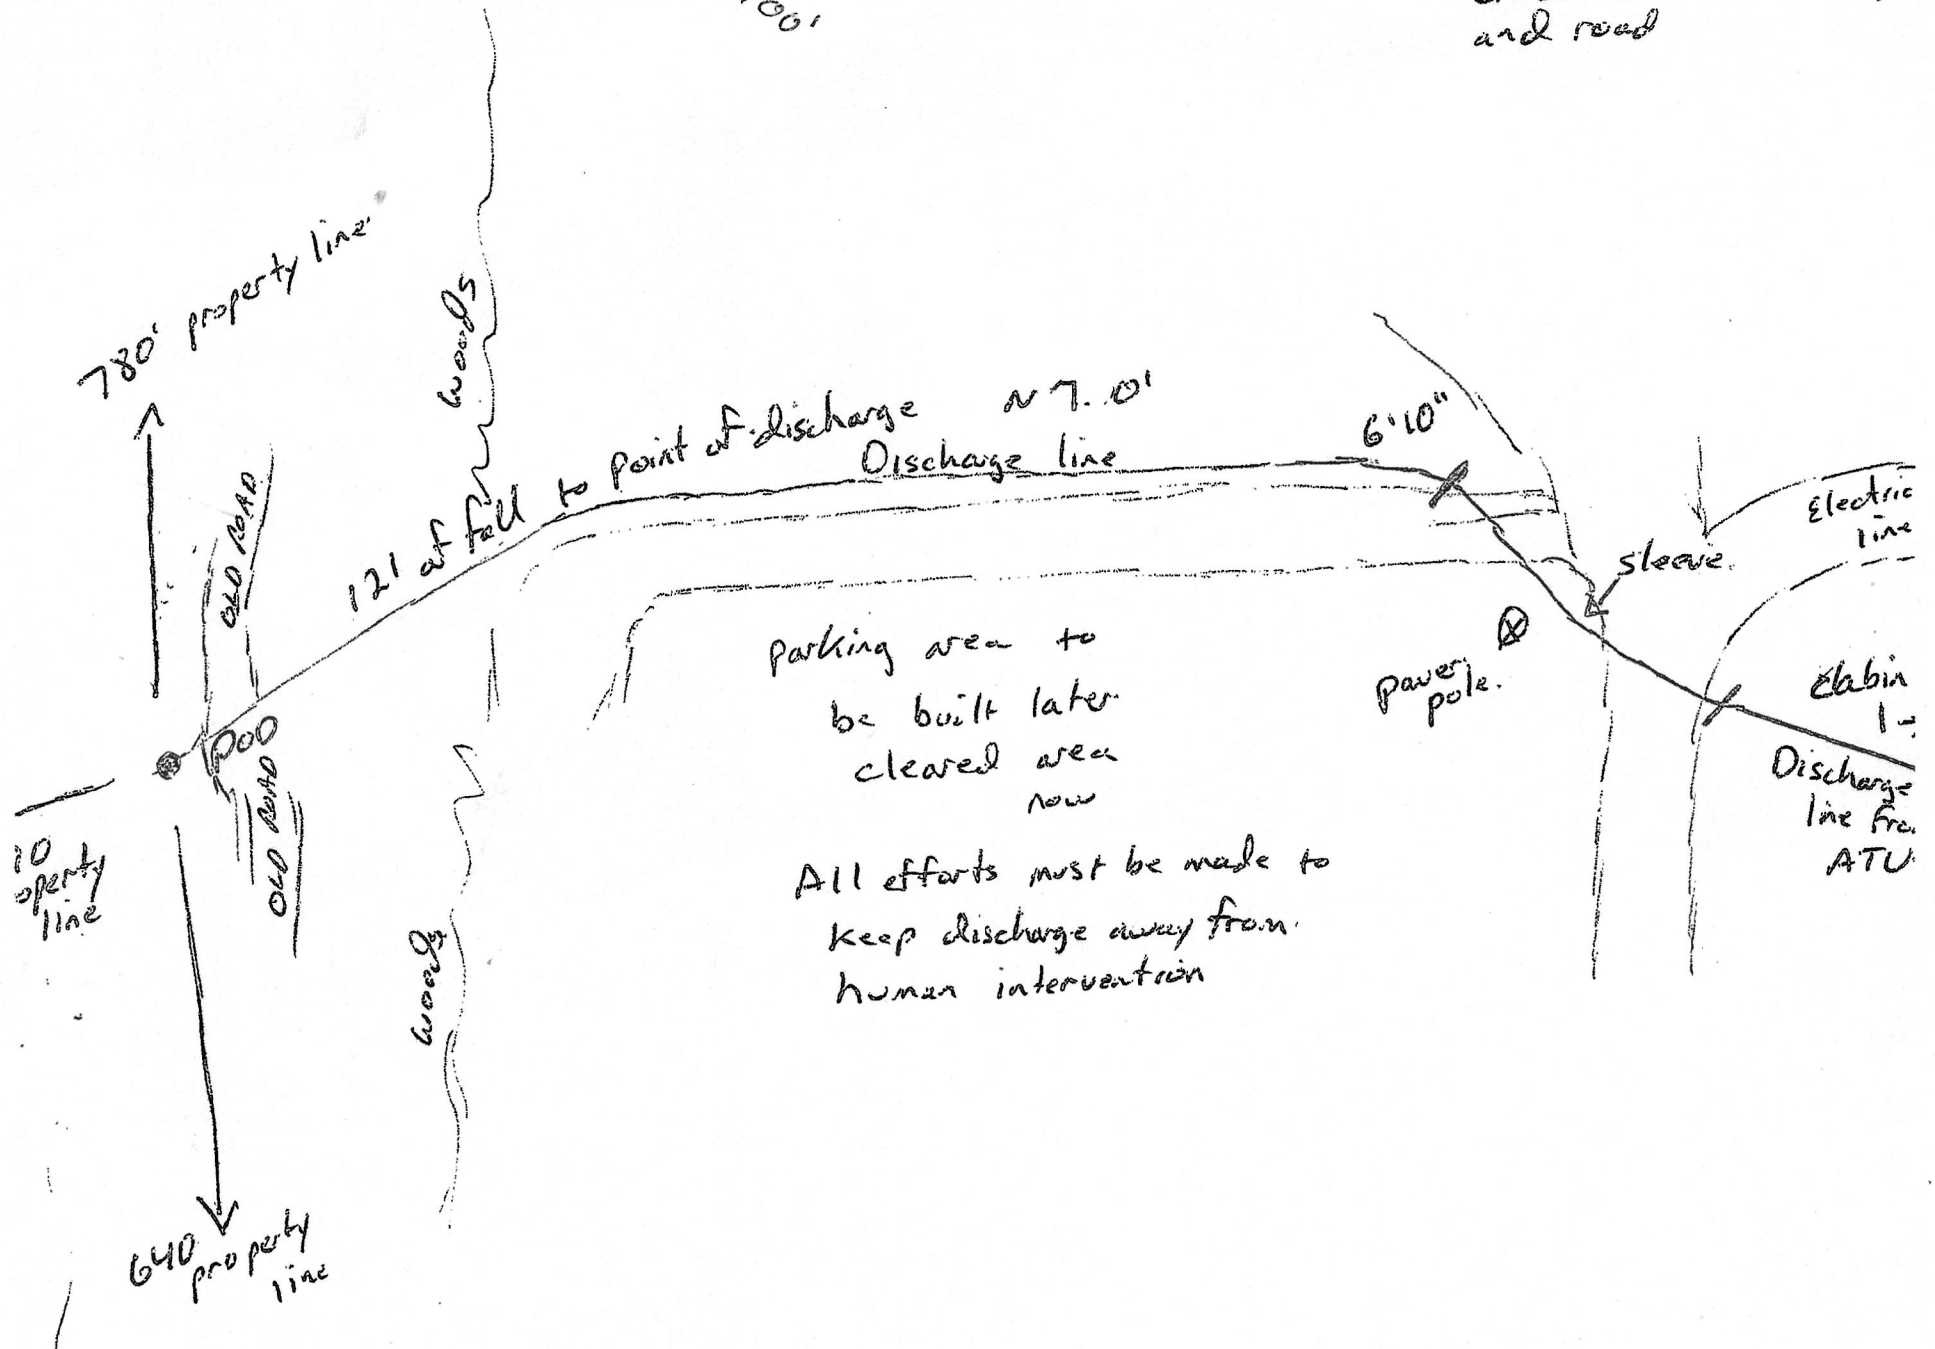 700'
and road
780' property line
woods
OLD ROAD
12' of fall to point of discharge ~ 7.0'
Discharge line
6'10"
Electric
line
sleeve
power
pole.
parking area to
be built later
cleared area
now
Cabin
Discharge
line
ATU
POD
OLD ROAD
10
operty
line
All efforts must be made to
keep discharge away from
human intervention
woods
640
property
line